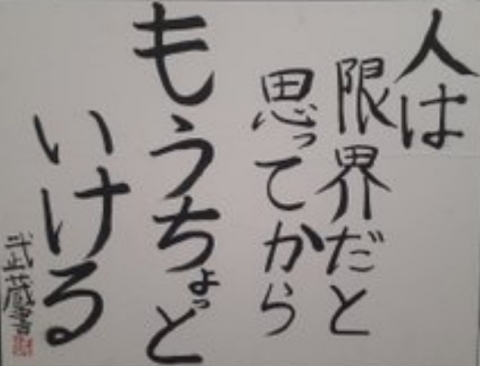 人は
限界だと
思ってから
もうちょっと
いける
武蔵書